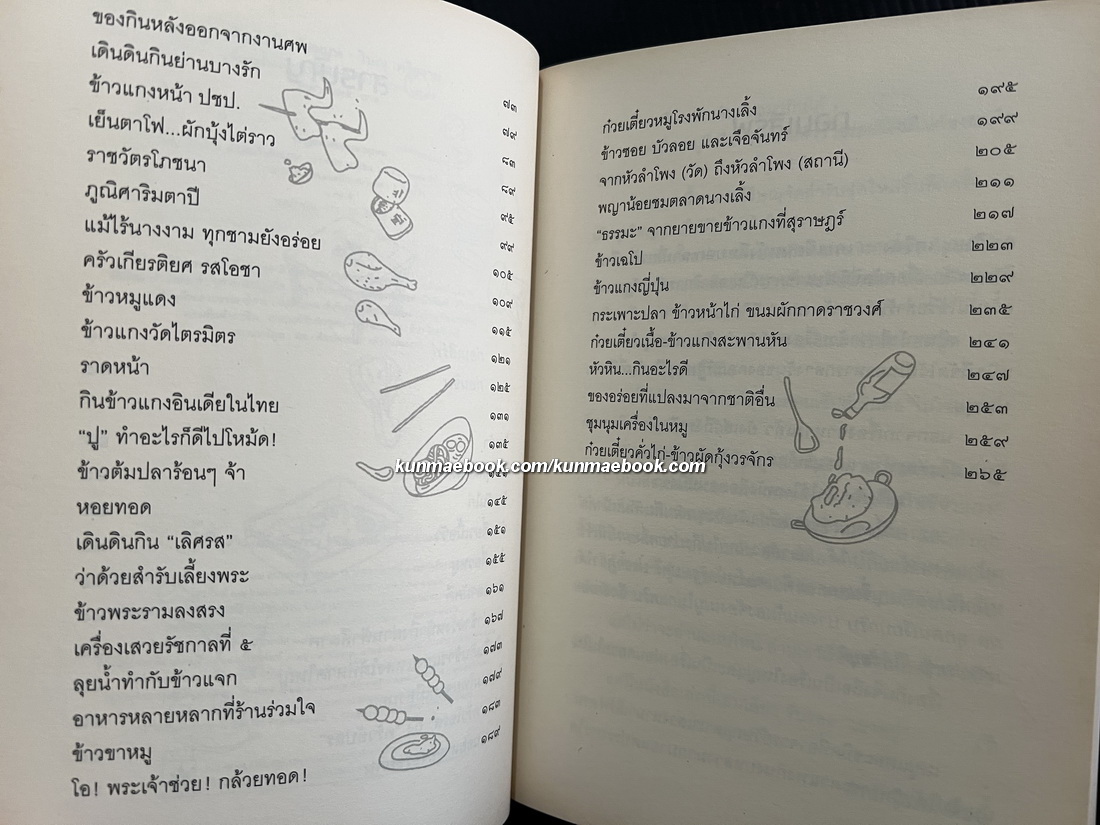 ของกินหลังออกจากงานศพ ๗๓
เดินดินกินย่านบางรัก ๗๙
ข้าวแกงหน้า ปชป. ๘๓
เย็นตาโฟ...ผักบุ้งไต่ราว ๘๙
ราชวัตรโภชนา ๙๕
ภูณิศาริมตาปี ๙๙
แม้ไร้นางงาม ทุกชามยังอร่อย ๑๐๕
ครัวเกียรติยศ รสโอชา ๑๐๙
ข้าวหมูแดง ๑๑๕
ข้าวแกงวัดไตรมิตร ๑๒๑
ราดหน้า ๑๒๕
กินข้าวแกงอินเดียในไทย ๑๓๑
“ปู” ทำอะไรก็ดีไปโหม้ด! ๑๓๕
ข้าวต้มปลาร้อนๆ จ้า
หอยทอด ๑๔๕
เดินดินกิน “เลิศรส” ๑๕๑
ว่าด้วยสำรับเลี้ยงพระ ๑๕๕
ข้าวพระรามลงสรง ๑๖๑
เครื่องเสวยรัชกาลที่ ๕ ๑๖๗
ลุยน้ำทำกับข้าวแจก ๑๗๓
อาหารหลายหลากที่ร้านร่วมใจ ๑๗๙
ข้าวขาหมู ๑๘๓
โอ! พระเจ้าช่วย! กล้วยทอด! ๑๘๙
ก๋วยเตี๋ยวหมูโรงพักนางเลิ้ง ๑๙๕
ข้าวซอย บัวลอย และเจือจันทร์ ๑๙๙
จากหัวลำโพง (วัด) ถึงหัวลำโพง (สถานี) ๒๐๕
พญาน้อยชมตลาดนางเลิ้ง ๒๑๑
“ธรรมะ” จากยายขายข้าวแกงที่สุราษฎร์ ๒๑๗
ข้าวเฉโป ๒๒๓
ข้าวแกงญี่ปุ่น ๒๒๙
กระเพาะปลา ข้าวหน้าไก่ ขนมผักกาดราชวงศ์ ๒๓๕
ก๋วยเตี๋ยวเนื้อ-ข้าวแกงสะพานหัน ๒๔๑
หัวหิน...กินอะไรดี ๒๔๗
ของอร่อยที่แปลงมาจากชาติอื่น ๒๕๓
ชุมนุมเครื่องในหมู ๒๕๙
ก๋วยเตี๋ยวคั่วไก่-ข้าวผัดกุ้งวรจักร ๒๖๕
kunmaebook.com/kunmaebook.com